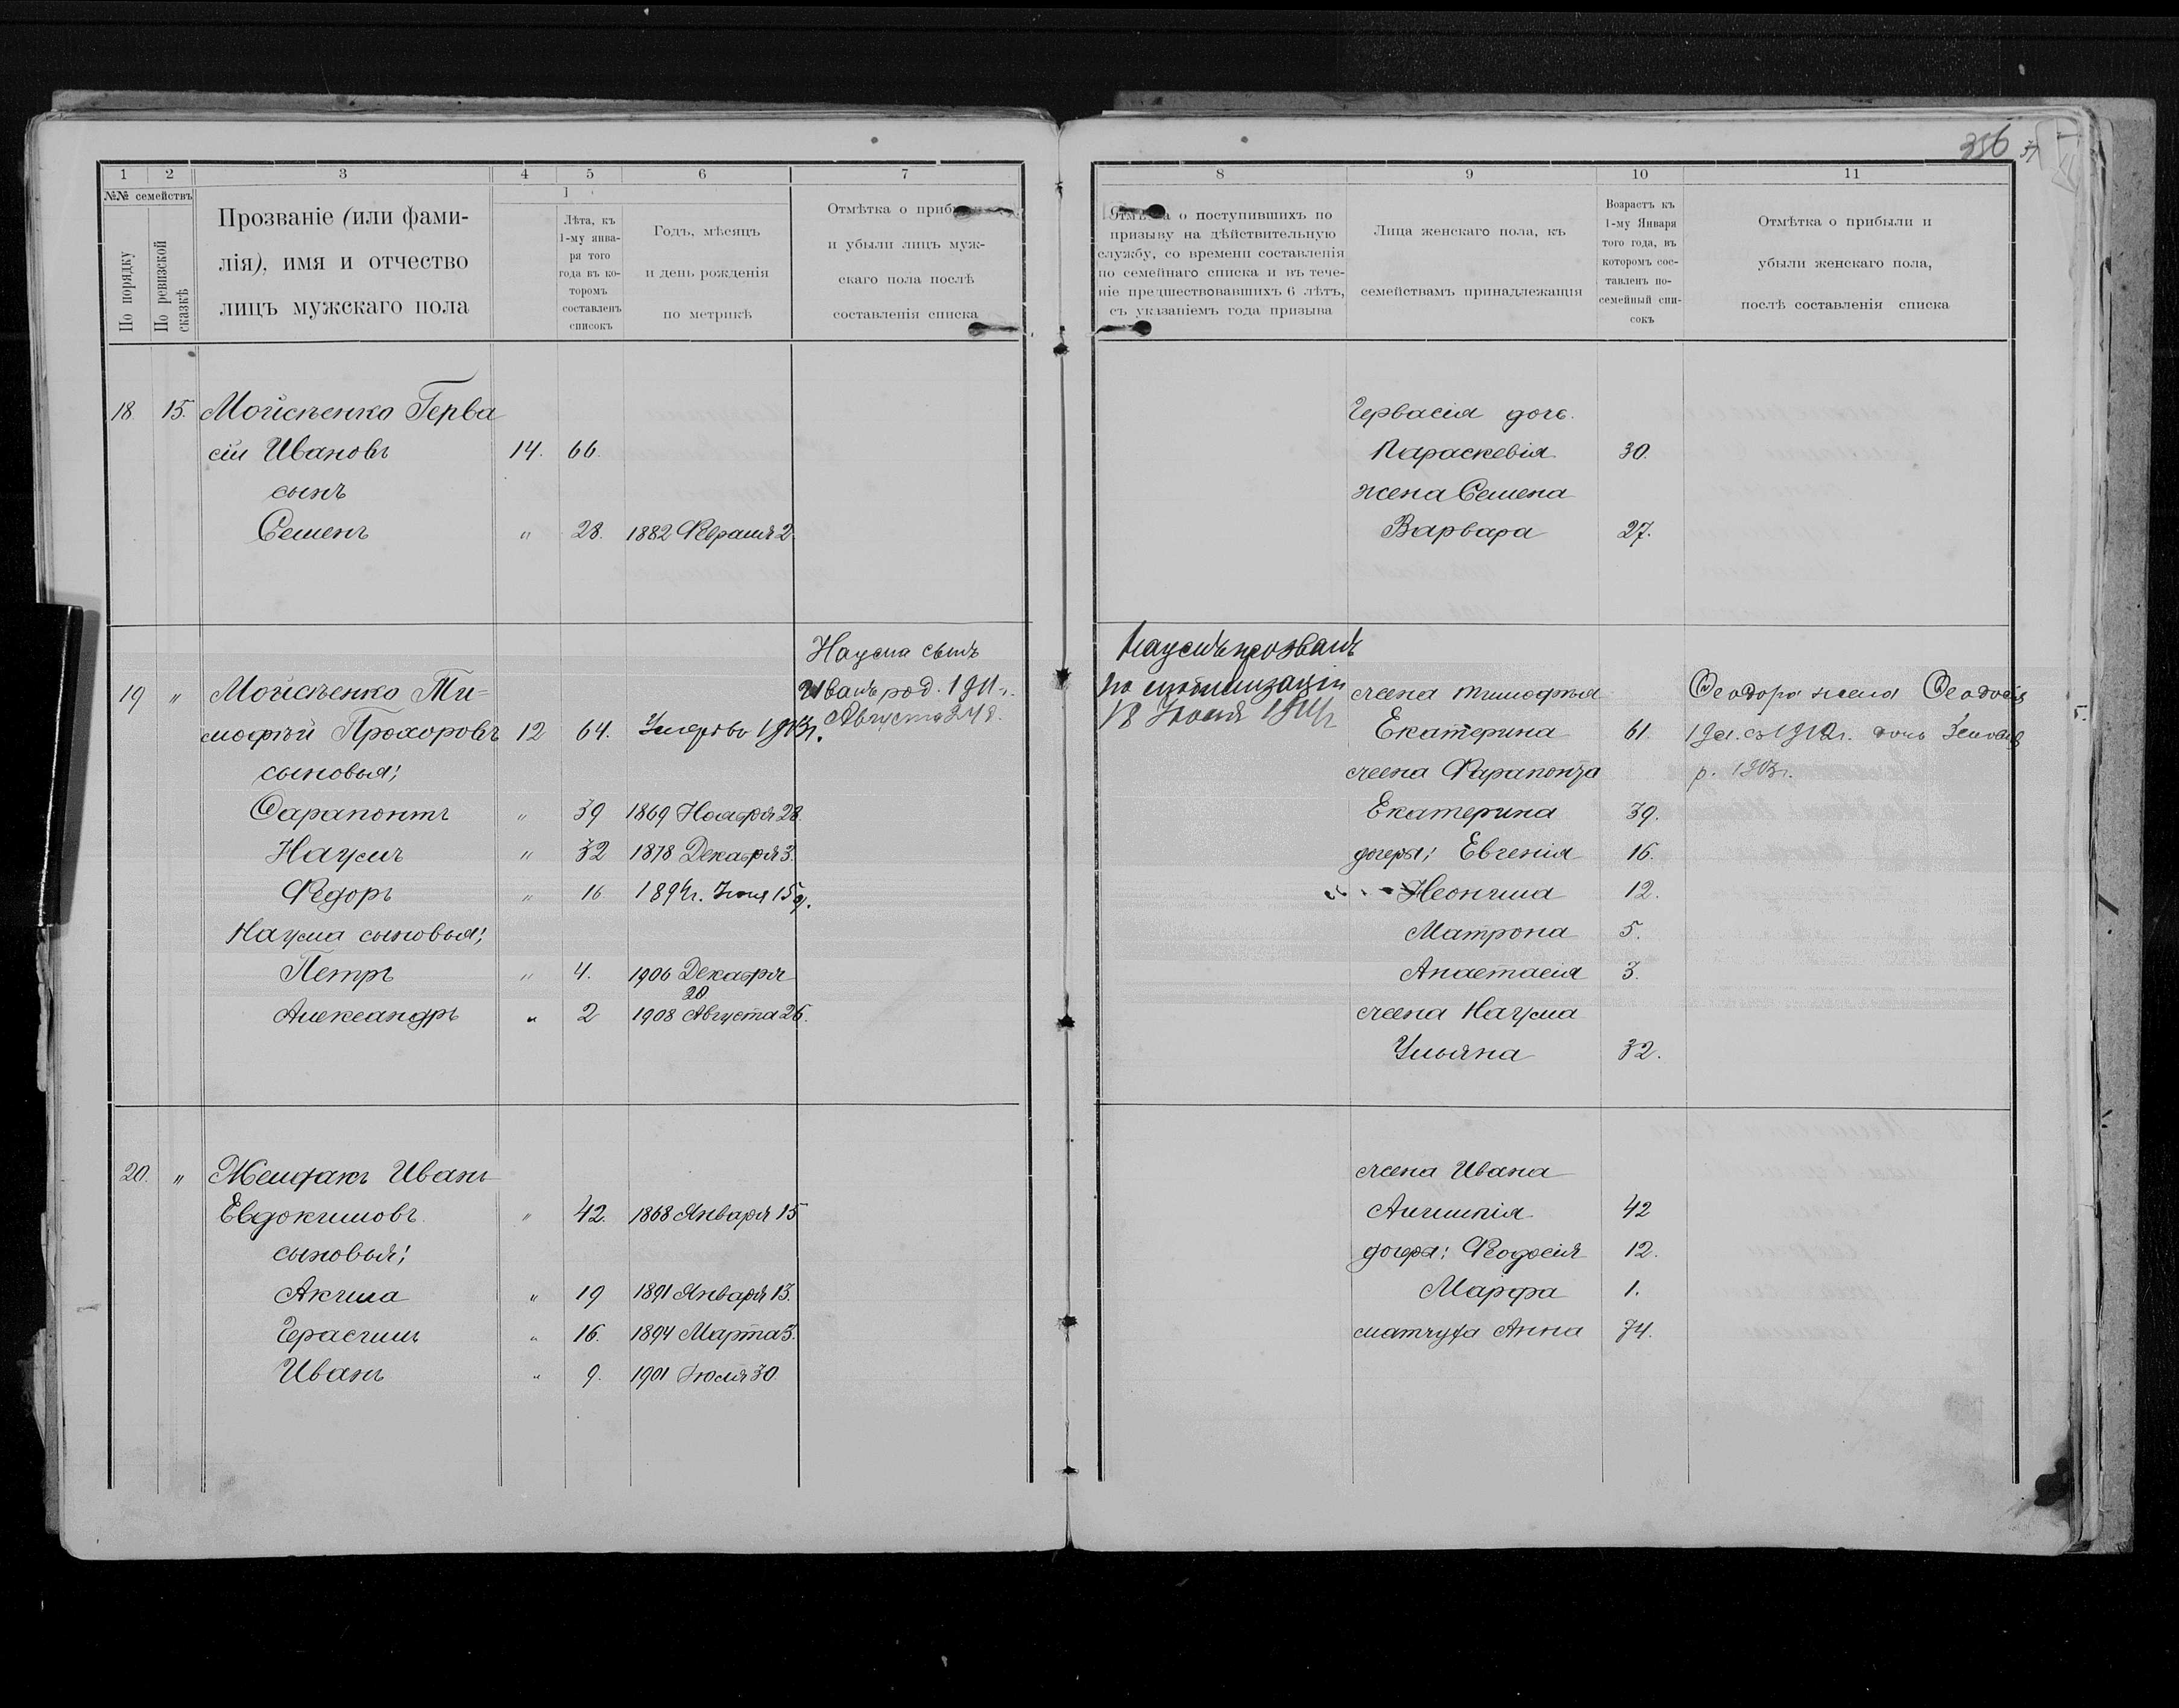 356
1 2 3 4 5 6 7
№№ семействъ
По порядку
По ревизской сказкѣ
Прозваніе (или фами-
лія), имя и отчество
лицъ мужскаго пола
Лѣта, къ
1-му янва-
ря того
года въ ко-
торомъ
составленъ
списокъ
Годъ, мѣсяцъ
и день рожденія
по метрикѣ
Отмѣтка о приб
и убыли лицъ муж-
скаго пола послѣ
составленія списка
18. 15. Мойсѣенко Герва
сій Ивановъ 14. 66.
сынъ
Семенъ " 28. 1882 Февраля 2
Наума сынъ
19 " Мойсѣенко Ти= Иванъ род. 1911 г.
моѳѣй Прохоровъ 12 64. Умеръ въ 1913 г. Августа 24 д.
сыновья:
Ѳарапонтъ " 39 1869 Ноября 28.
Наумъ " 32 1878 Декабря 3.
Федоръ " 16 1894 г. Іюня 15 д.
Наума сыновья:
Петръ " 4. 1906 Декабря
20
Александръ " 2 1908 Августа 26.
20. " Иванъ
Евдокимовъ " 42. 1868 Января 15
сыновья:
Акима " 19 1891 Января 13.
Герасимъ " 16. 1894 Марта 3.
Иванъ " 9. 1901 Іюля 30
8 9 10 11
Отмѣтка о поступившихъ по
призыву на дѣйствительную
службу, со времени составленія
по семейнаго списка и въ тече-
ніе предшествовавшихъ 6 лѣтъ,
съ указаніемъ года призыва
Лица женскаго пола, къ
семействамъ принадлежащія
Возрастъ къ
1-му Января
того года, въ
которомъ сос-
тавленъ по-
семейный спи-
сокъ
Отмѣтка о прибыли и
убыли женскаго пола,
послѣ составленія списка
Гервасія дочь.
Параскевія 30.
жена Семена
Варвара 27.
Наумъ призванъ
по мобилизаціи жена Тимофѣя Ѳеодора жена Ѳеодосія
18 Іюля 1914 г Екатерина 61. съ 1912 г. дочь
жена Фарапонта р. 1913 г.
Екатерина 39.
дочери: Евгенія 16.
Неонила 12.
Матрона 5.
Анастасія 3.
жена Наума
Ульяна 32.
жена Ивана
42
дочери: Феодосія 12.
Марфа 1.
матчуха Анна 74.